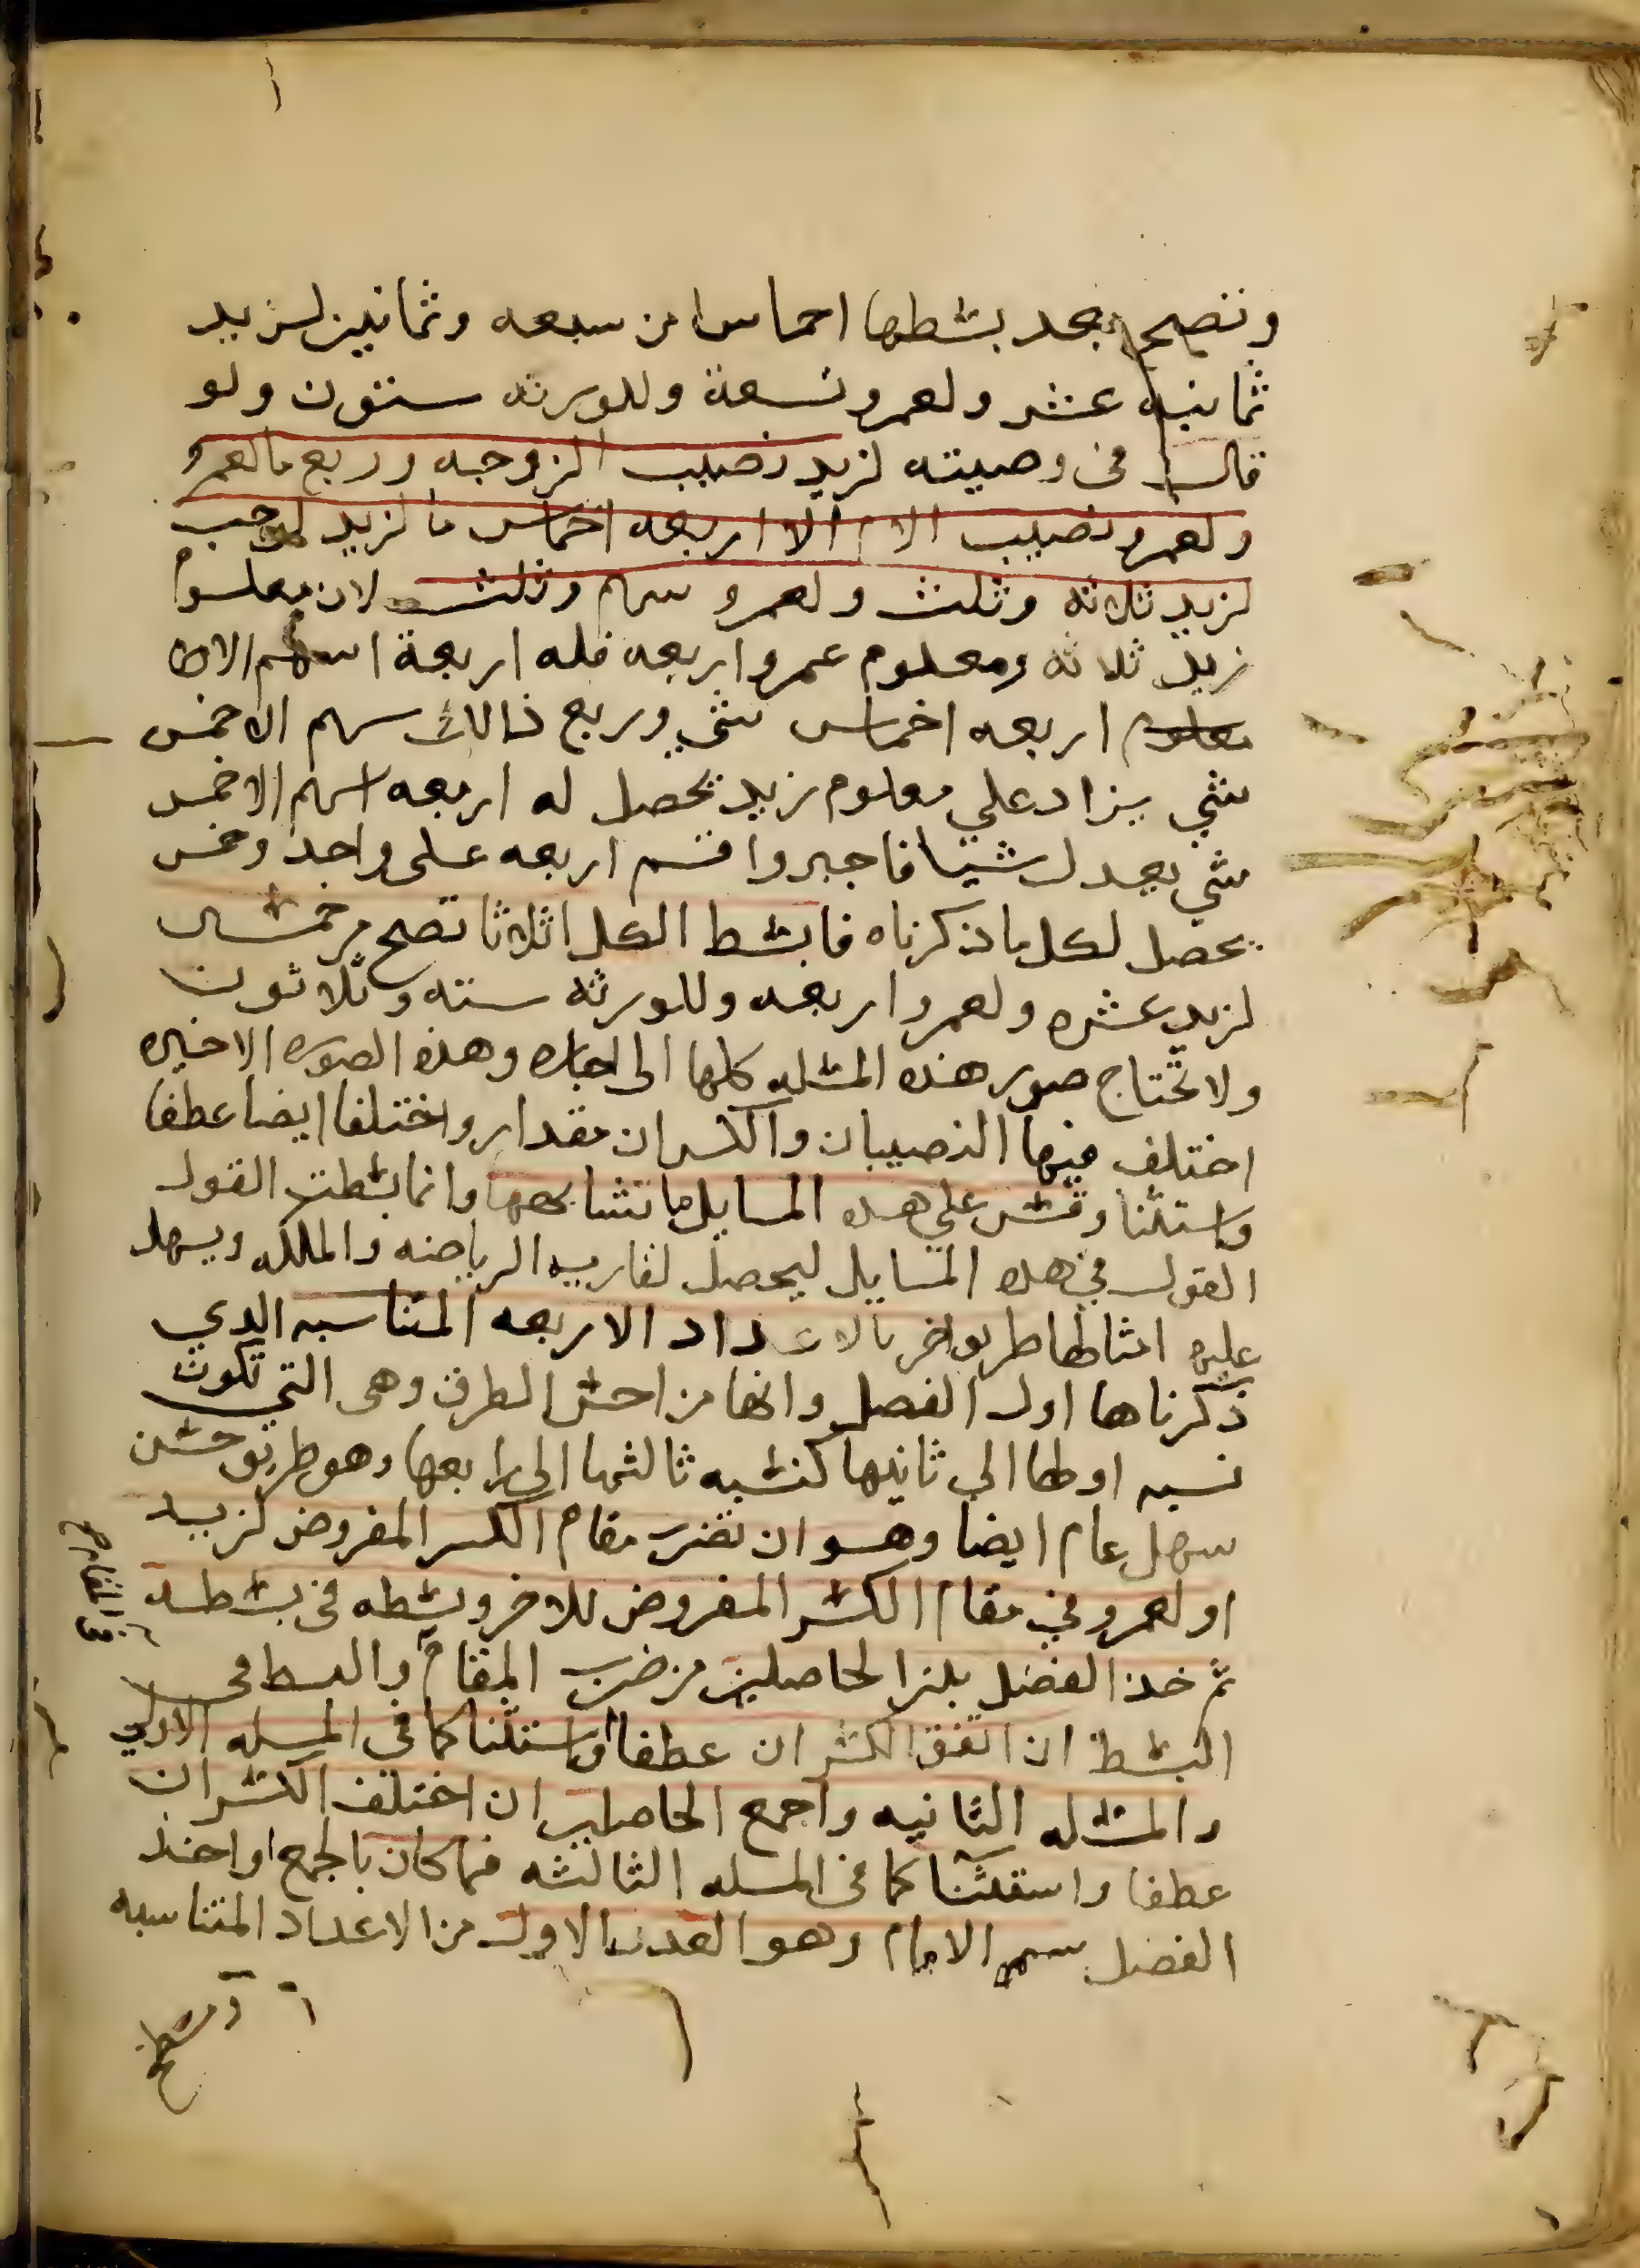 وتصح بعد بسطها اخماسا من سبعه وثمانين لزيد
ثمانيه عشر ولعمرو تسعة وللورثه ستون ولو
قال في وصيته لزيد نصيب الزوجه وربع ما لعمرو
ولعمرو نصيب الام الا اربعه اخماس ما لزيد لوجب
لزيد ثلاثه وثلث ولعمرو سهم وثلث لان معلوم
زيد ثلاثه ومعلوم عمرو اربعه فله اربعة اسهم الا
اربعه اخماس شي وربع ذالك سهم الا خمس
شي يزاد علي معلوم زيد يحصل له اربعه اسهم الا خمس
شي يعدل شيا فاجبر واقسم اربعه على واحد وخمس
يحصل لكل ما ذكرناه فابسط الكل اثلاثا تصح من خمسين
لزيد عشره ولعمرو اربعه وللورثه سته وثلاثون
ولا تحتاج صور هذه المسله كلها الى اجازه وهذه الصوره الاخيره
اختلف فيها النصيبان والكسران مقدار واختلفا ايضا عطفا
واستثنا وقس علي هذه المسايل ما تشابهها وانما بسطت القول
القول في هذه المسايل ليحصل لقاريه الرياضه والملكه ويسهل
عليه امثالها طريق اخر بالاعداد الاربعه المتناسبه الذي
ذكرناها اول الفصل وانها من احسن الطرق وهى التي تكون
نسبه اولها الي ثانيها كنسبه ثالثها الي رابعها وهو طريق حسن
سهل عام ايضا وهو ان تضرب مقام الكسر المفروض لزيد
او لعمرو في مقام الكسر المفروض للاخر وبسطه في بسطه
ثم خذ الفضل بين الحاصلين من ضرب المقام والبسط في
في المقام صح
البسط ان اتفق الكسران عطفا واستثنا كما في المسله الاولي
والمسله الثانيه واجمع الحاصلين ان اختلف الكسران
عطفا واستثنا كما في المسله الثالثه فما كان بالجمع او اخذ
الفضل سمه الامام وهو العدد الاول من الاعداد المتناسبه